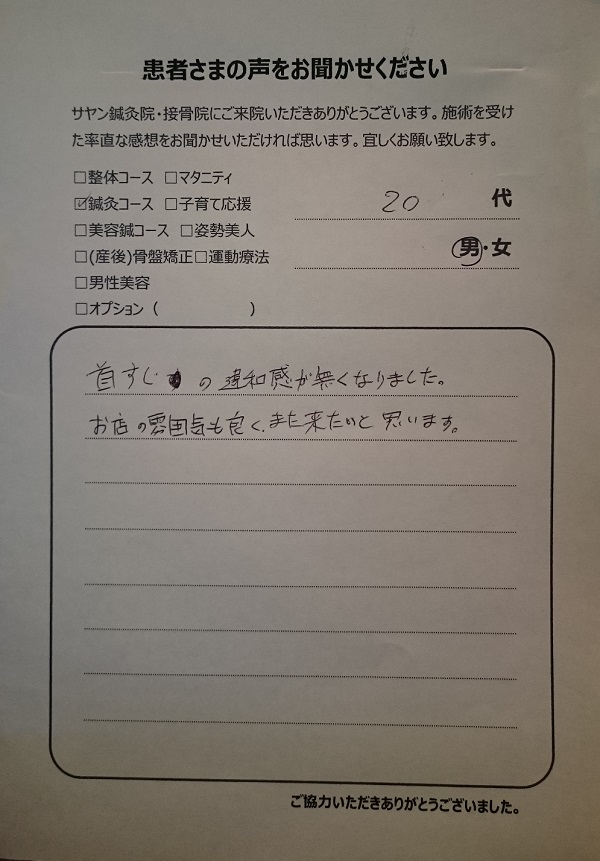 患者さまの声をお聞かせください
サヤン鍼灸院・接骨院にご来院いただきありがとうございます。施術を受け
た率直な感想をお聞かせいただければ思います。宜しくお願い致します。
□整体コース □マタニティ
☑鍼灸コース □子育て応援
20 代
□美容鍼コース □姿勢美人
□(産後)骨盤矯正□運動療法
男・女
□男性美容
□オプション ( )
首すじの違和感が無くなりました。
お店の雰囲気も良く、また来たいと思います。
ご協力いただきありがとうございました。